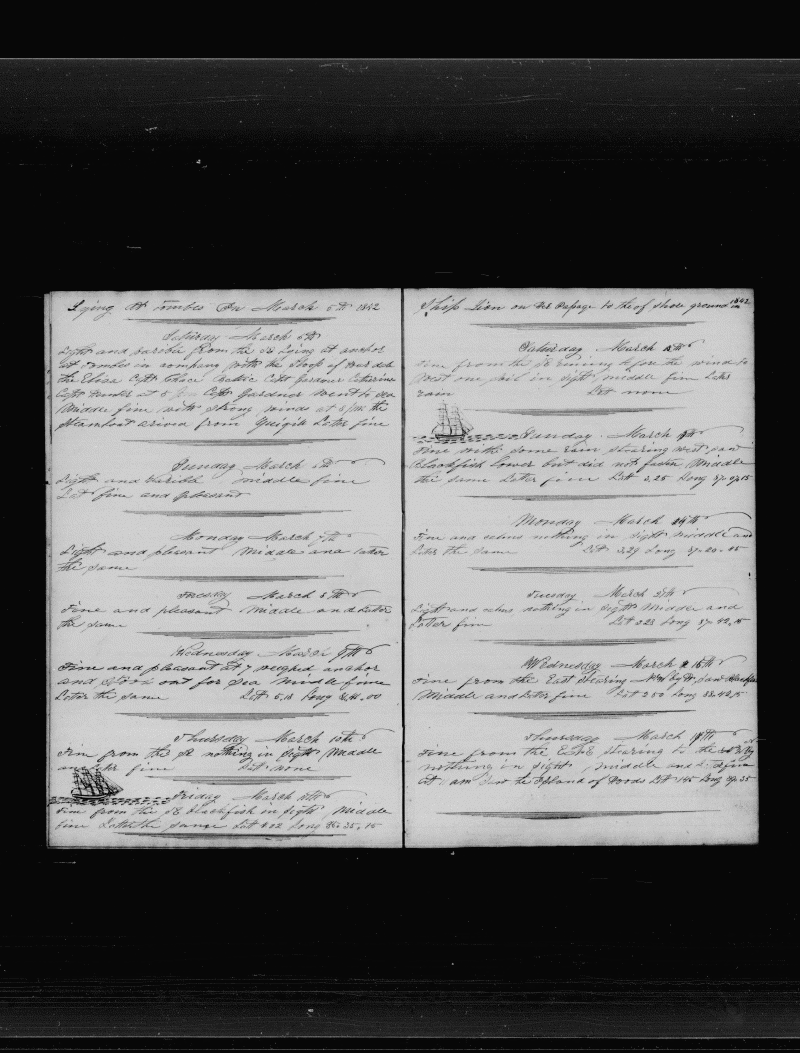 Lying at Tumbes On March 5th 1842
Saturday March 5th
Light and varible from the SE Lying at anchor
at Tumbes in company with the Sloop of
the Eliza Cpt Chace Baltic Cpt Gardner Catherine
Cpt at 5 Cpt Gardner Went to sea
Middle fine with strong winds at 8 PM the
Steamboat arived from Later fine
Sunday March 6th
Light and varible middle fine
Lat fine and pleasant
Monday March 7th
Light and pleasant Middle and latter
the same
Tuesday March 8th
Fine and pleasant Middle and Later
the same
Wednesday March 9th
Fine and pleasant At 7 weighed anchor
and stood out for Sea Middle fine
Later the same Latt Long 00
Thursday March 10th
Fine from the SE nothing in Sight Middle
and later fine Latt none
Friday March 11th
Fine from the SE blackfish in sight Middle
fine Latter the same Latt Long 35.15
Ship Lion on the Pasage to the of shore ground in 1842
Saturday March 12th
Fine from the SE Runing before the wind to
West one sail in sight middle fine Later
rain Latt none
Sunday March
Fine with some rain stearing West saw
Blackfish lower but did not fasten Middle
the same Later fine Latt 3,25 Long 15
Monday March 14th
Fine and calms nothing in sight Middle and
later the same Latt 3,29 Long 87.20.45
Tuesday March
Light and calms nothing in sight Middle and
Latter fine Latt Long 87.42.15
Wednesday March 16th
Fine from the East stearing saw blackfish
Middle and later fine Latt 2 50 Long 88.42.15
Thursday March 17th
Fine from the East stearing to the
nothing in sight middle and
at am saw the Island of Latt Long 35